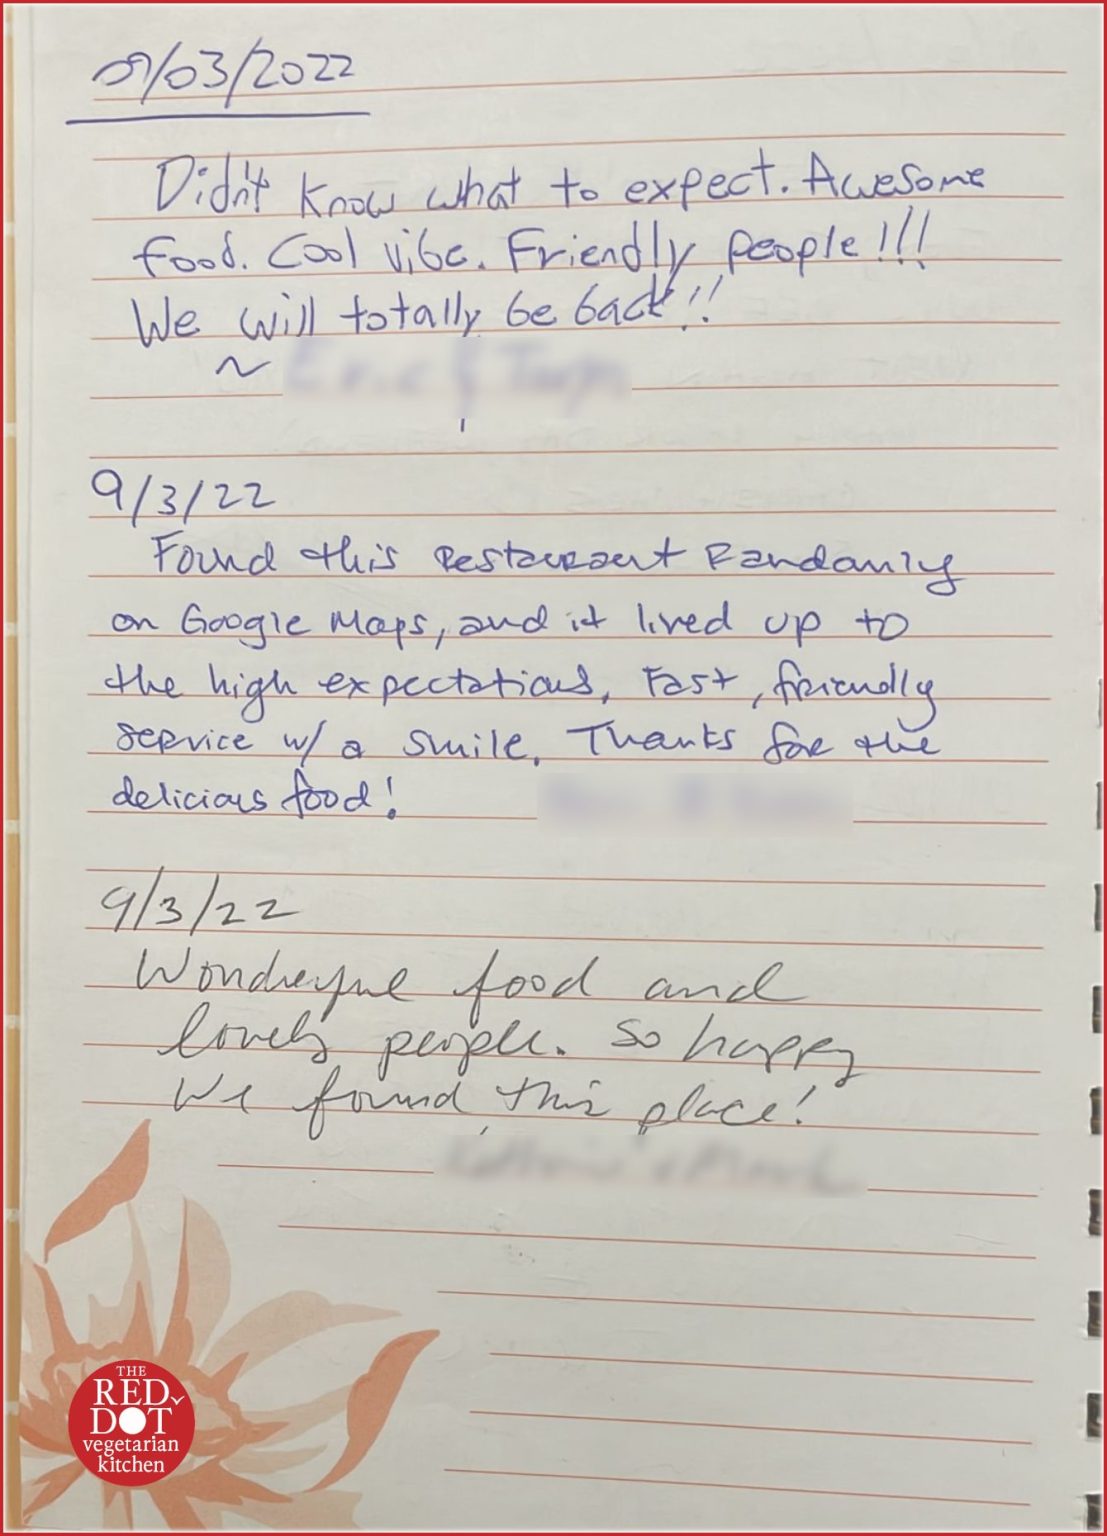 09/03/2022
Didn't know what to expect. Awesome
food. Cool vibe. Friendly people!!!
We will totally be back!!
~
9/3/22
Found this restaurant randomly
on Google Maps, and it lived up to
the high expectations, Fast, friendly
service w/ a smile. Thanks for the
delicious food!
9/3/22
Wonderful food and
lovely people. So happy
we found this place!
THE
RED
DOT
vegetarian
kitchen